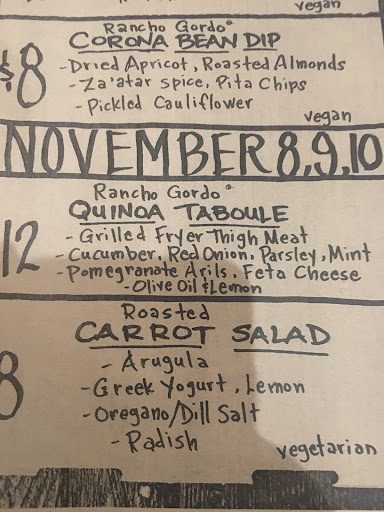 vegan
Rancho Gordo®
$8 CORONA BEAN DIP
-Dried Apricot, Roasted Almonds
-Za'atar spice, Pita Chips
-Pickled Cauliflower
vegan
NOVEMBER 8,9,10
Rancho Gordo®
12 QUINOA TABOULE
-Grilled Fryer Thigh Meat
-Cucumber, Red Onion, Parsley, Mint
-Pomegranate Arils, Feta Cheese
-Olive Oil & Lemon
Roasted
8 CARROT SALAD
- Arugula
-Greek Yogurt, Lemon
-Oregano/Dill Salt
- Radish
vegetarian